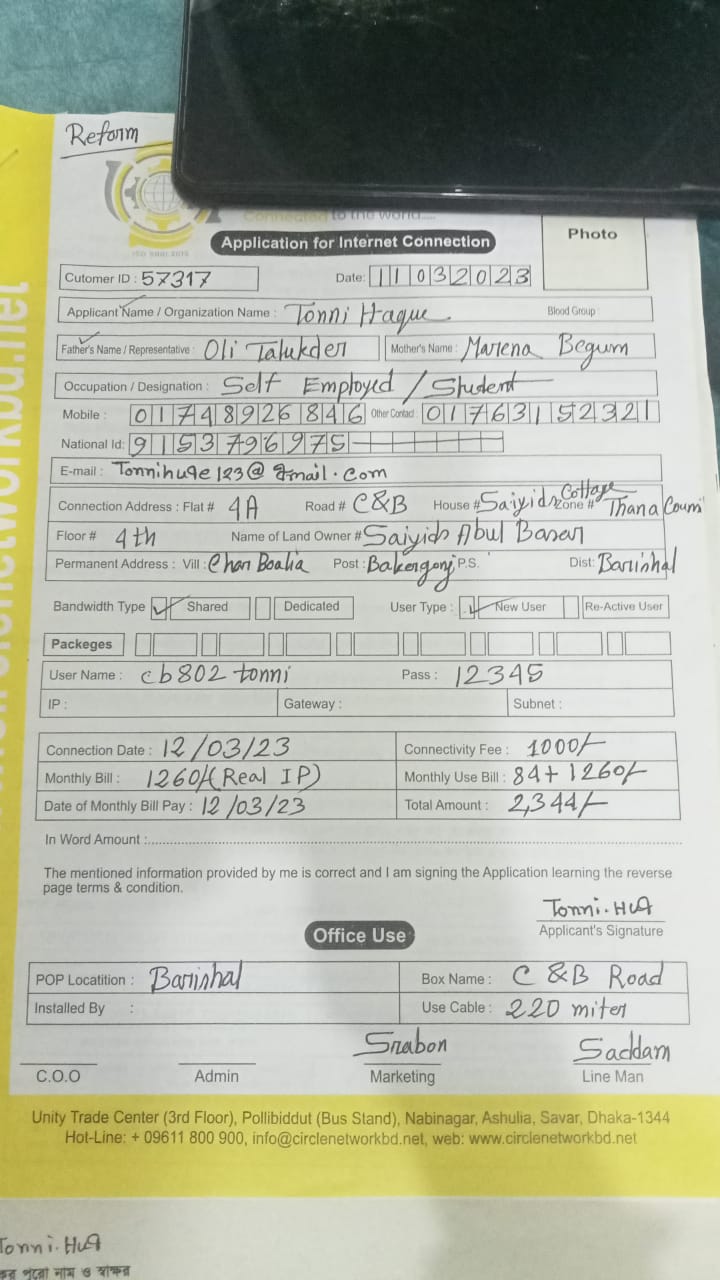 Reform
ISO 9001:2015
Connected to the world.....
Application for Internet Connection
Photo
Cutomer ID : 57317 Date: 11032023
Applicant Name / Organization Name : Tonni Haque Blood Group
Father's Name / Representative : Oli Talukder Mother's Name : Marena Begum
Occupation / Designation : Self Employed / Student
Mobile : 01748926846 Other Contact : 01763152321
National Id: 9153796975
E-mail : Tonnihuqe123@gmail.com
Connection Address : Flat # 4A Road # C&B House # Saiyids Cottage Zone # Thana Couni
Floor # 4th Name of Land Owner # Saiyids Abul Basar
Permanent Address : Vill : Char Boalia Post : Bakergonj P.S. Dist: Barishal
Bandwidth Type Shared Dedicated User Type : New User Re-Active User
Packeges
User Name : cb802 tonni Pass : 12345
IP : Gateway : Subnet :
Connection Date : 12/03/23 Connectivity Fee : 1000/-
Monthly Bill : 1260/-(Real IP) Monthly Use Bill : 84+1260/-
Date of Monthly Bill Pay : 12/03/23 Total Amount : 2,344/-
In Word Amount :
The mentioned information provided by me is correct and I am signing the Application learning the reverse
page terms & condition.
Tonni.Huq
Applicant's Signature
Office Use
POP Locatition : Barishal Box Name : C &B Road
Installed By : Use Cable : 220 miter
Srabon Saddam
C.O.O Admin Marketing Line Man
Unity Trade Center (3rd Floor), Pollibiddut (Bus Stand), Nabinagar, Ashulia, Savar, Dhaka-1344
Hot-Line: + 09611 800 900, info@circlenetworkbd.net, web: www.circlenetworkbd.net
Tonni.Huq
পুরো নাম ও স্বাক্ষর